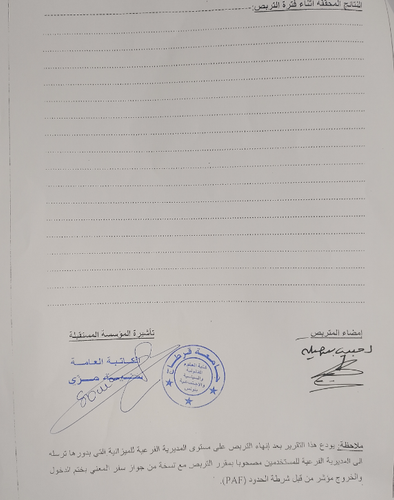 النتائج المحققة أثناء فترة التربص:
إمضاء المتربص
تأشيرة المؤسسة المستقبلة
الكاتبة العامة
جامعة قرطاج
كلية العلوم
القانونية
والسياسية
والاجتماعية
بتونس
ملاحظة: يودع هذا التقرير بعد إنهاء التربص على مستوى المديرية الفرعية للميزانية التي بدورها ترسله
الى المديرية الفرعية للمستخدمين مصحوبا بمقرر التربص مع نسخة من جواز سفر المعني بختم الدخول
والخروج مؤشر من قبل شرطة الحدود (PAF).